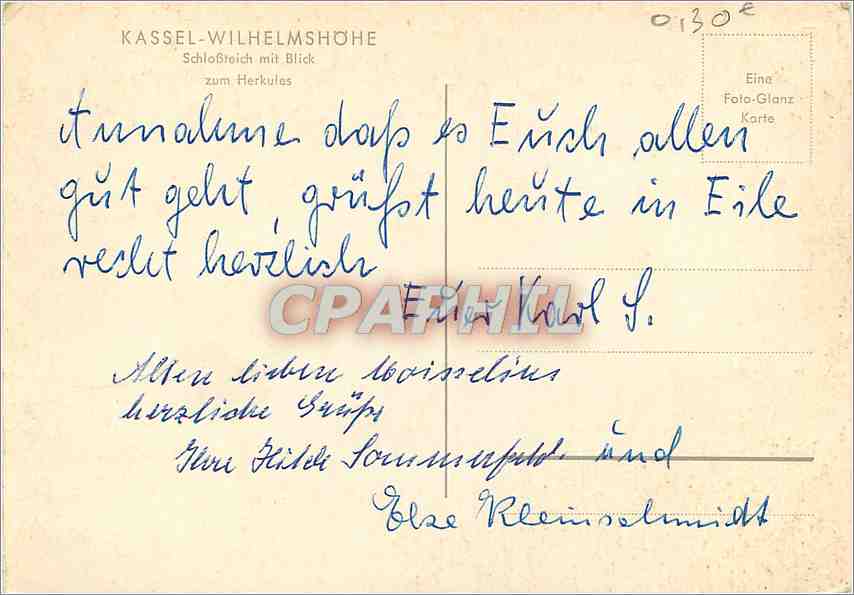 0,30€
KASSEL-WILHELMSHÖHE
Schloßteich mit Blick
zum Herkules
Eine
Foto-Glanz
Karte
Annahme daß es Euch allen
gut geht, grüßst heute in Eile
recht herzlich
Euer Karl S.
CPAPHIL
Allen lieben
herzliche Grüße
Ihre Hilde Sommerfeld und
Else Kleinschmidt